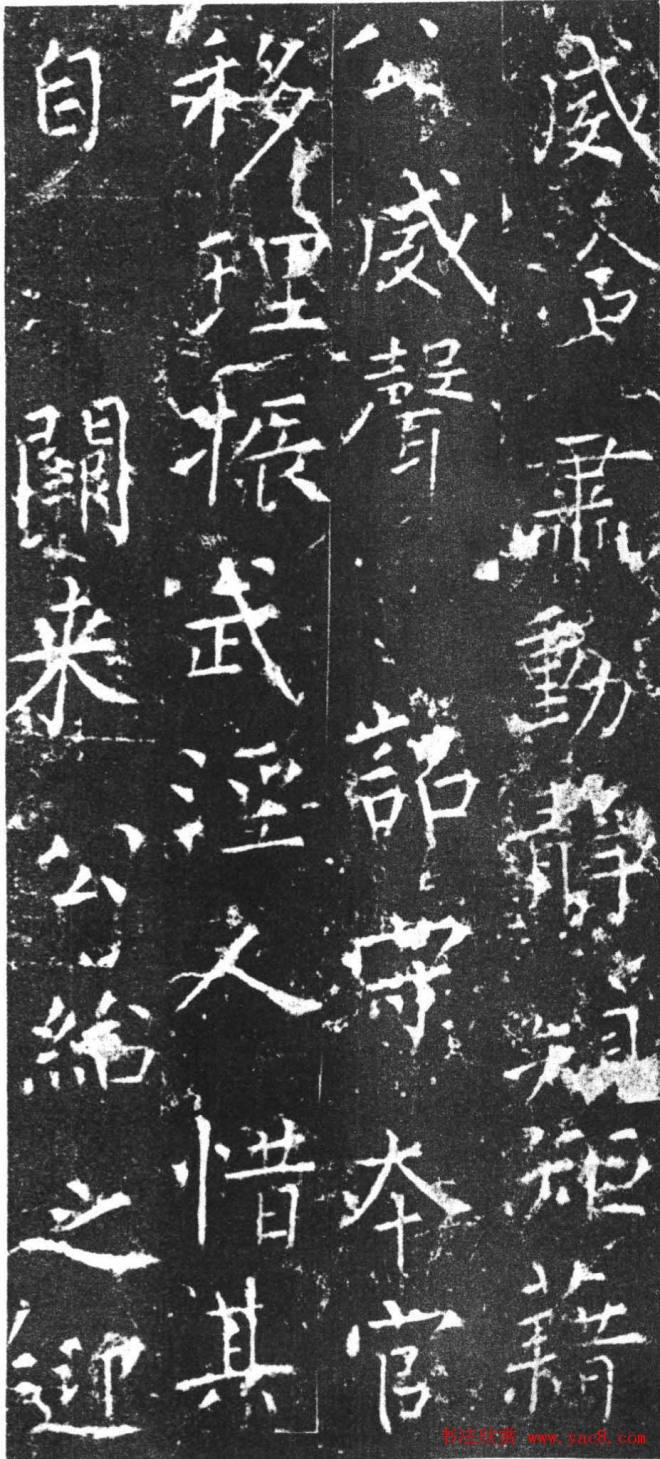 威令肅動靜規矩藉
公威聲詔守本官
移理振武涇人惜其
自關來公綸之迎
书法欣赏 www.yac8.com